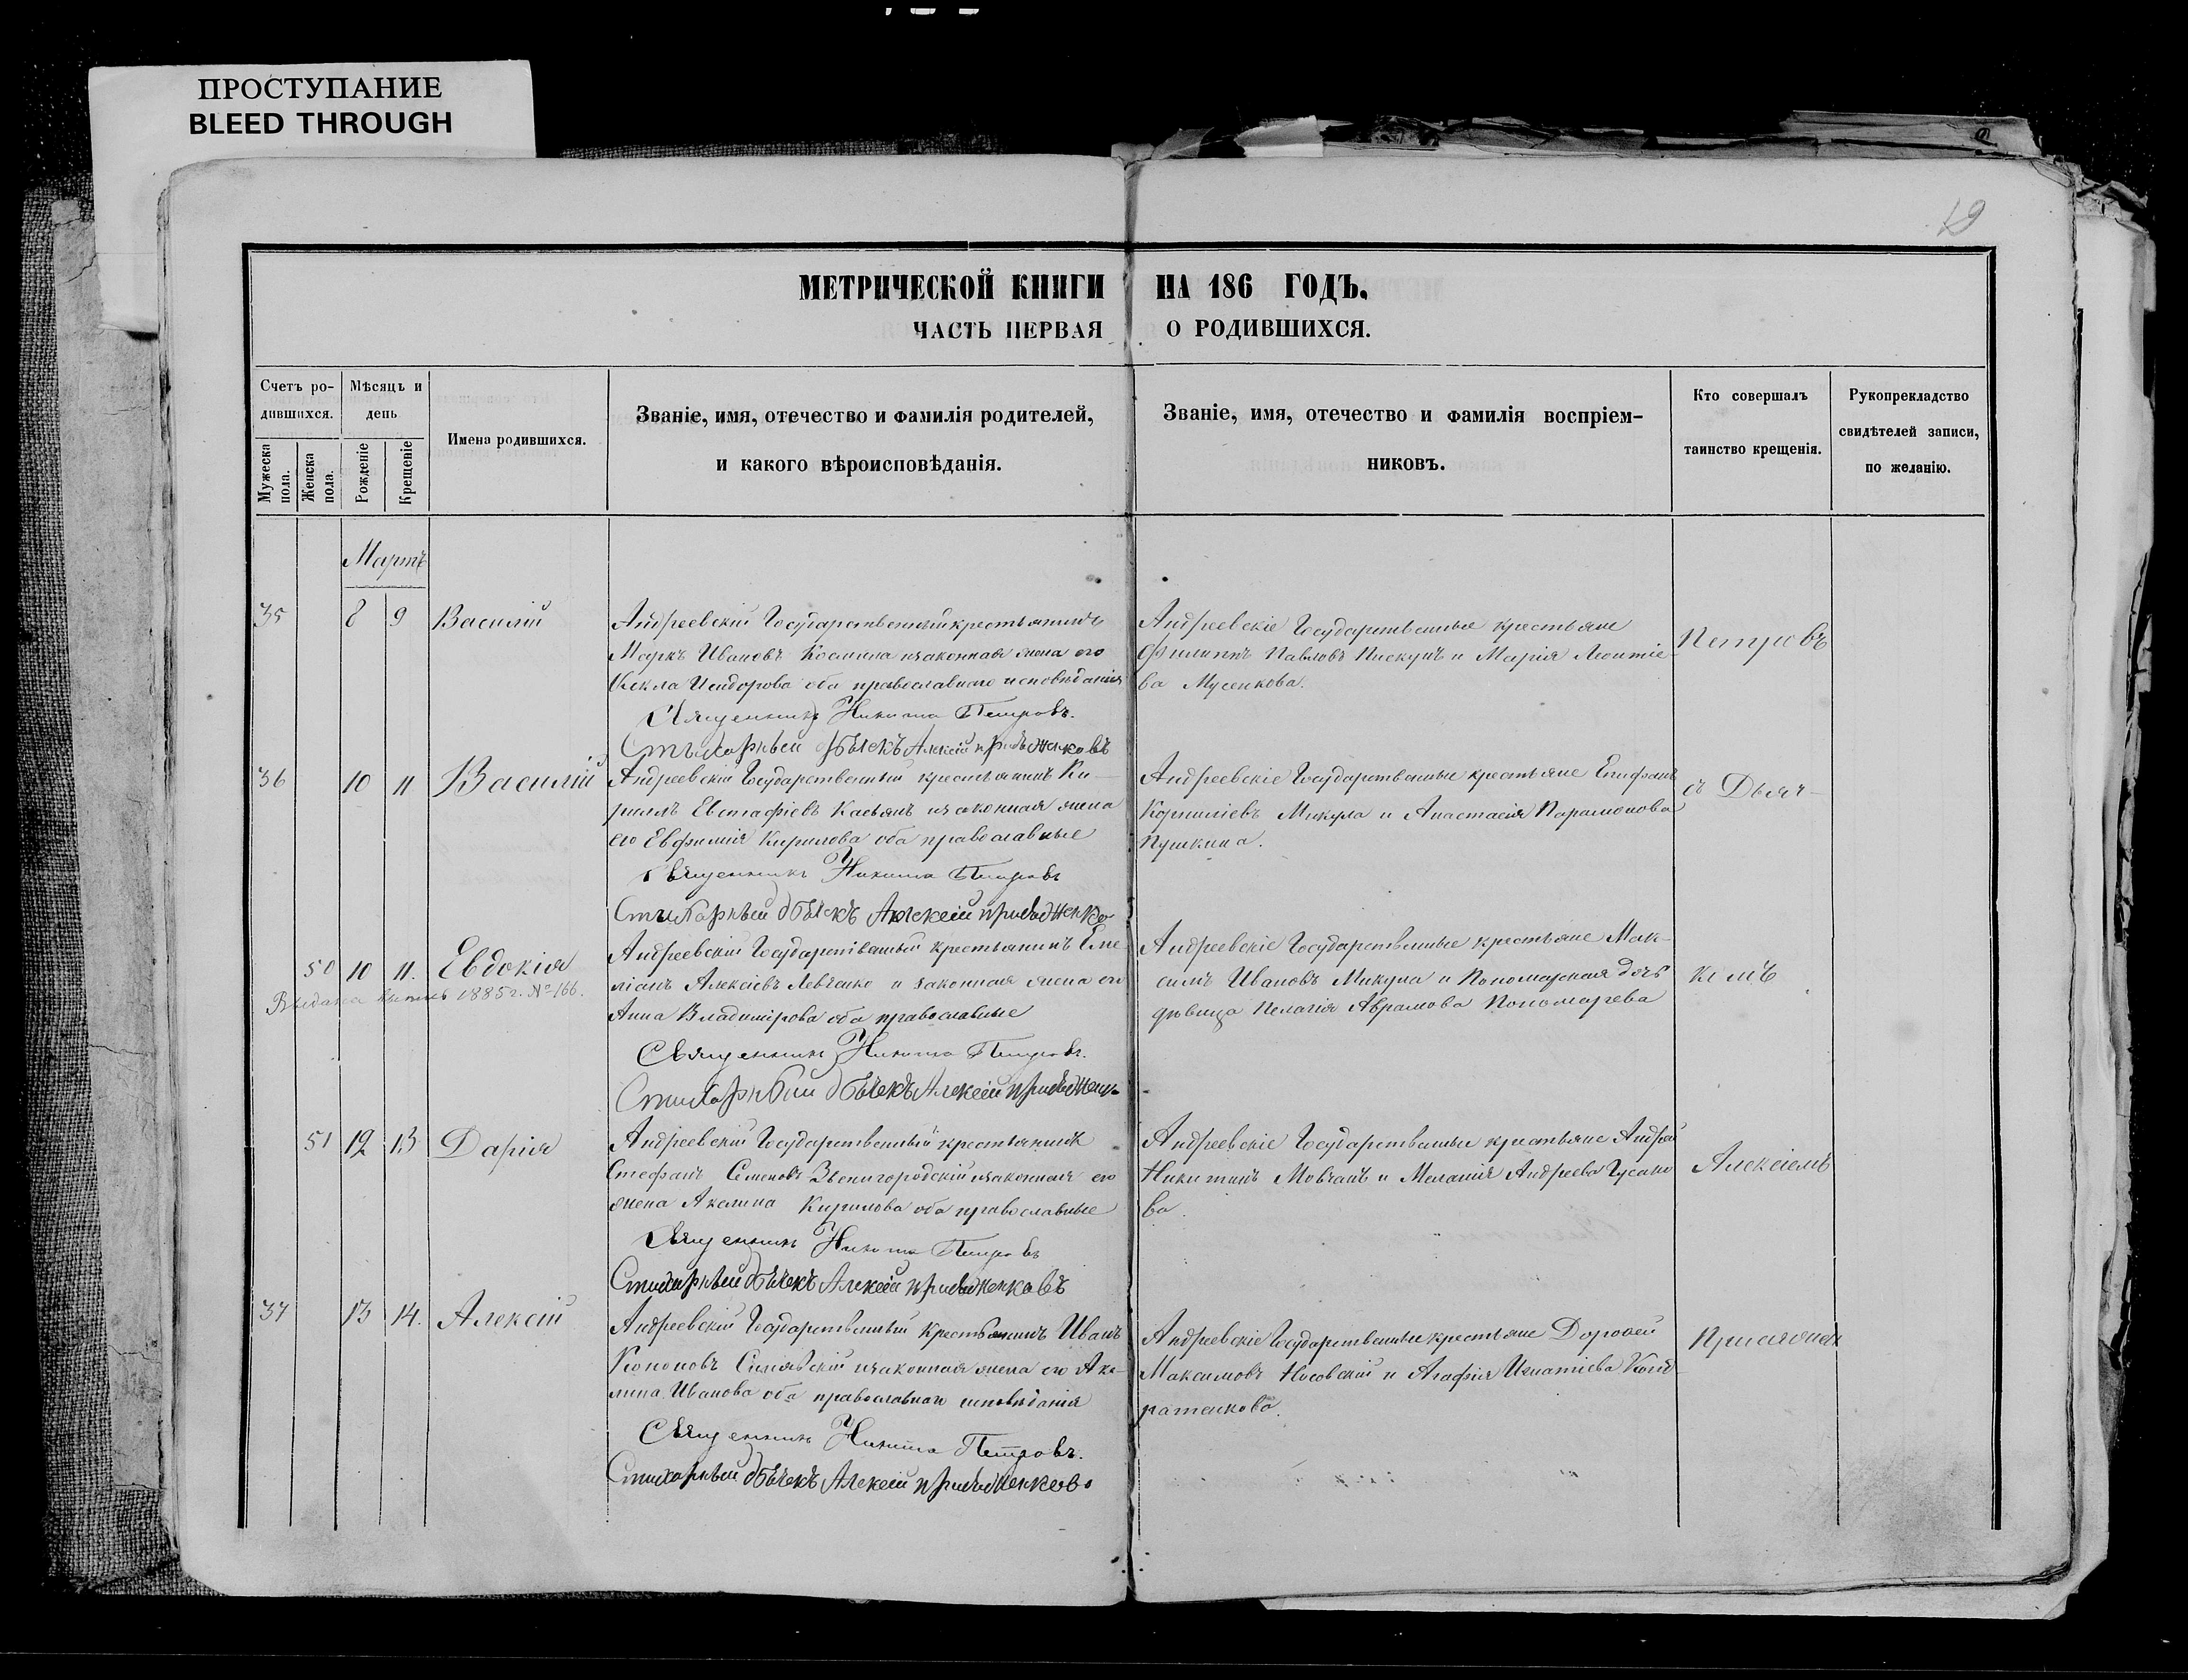 ПРОСТУПАНИЕ
BLEED THROUGH
19
МЕТРИЧЕСКОЙ КНИГИ НА 186 ГОДЪ.
ЧАСТЬ ПЕРВАЯ О РОДИВШИХСЯ.
Счетъ ро-
дившихся.
Мужеска
пола.
Женска
пола.
Мѣсяцъ и
день
Рожденіе
Крещеніе
Имена родившихся.
Званіе, имя, отечество и фамилія родителей,
и какого вѣроисповѣданія.
Званіе, имя, отечество и фамилія воспріем-
никовъ.
Кто совершалъ
таинство крещенія.
Рукопрекладство
свидѣтелей записи,
по желанію.
Мартъ
35 8 9 Василій
Андреевскій Государственный крестьянинъ
Маркъ Ивановъ изаконная жена его
Исидорова оба православнаго исповѣданія
Священникъ Никита Петровъ.
Алексій
Андреевскіе Государственные крестьяне
Филиппъ Павловъ Пискунъ и Марія Леонтіе-
ва Мусенкова.
Петровъ
36 10 11 Василій
Андреевскій Государственный крестьянинъ Ки-
риллъ Евстафіевъ Касьянъ изаконная жена
его Евфимія Кирилова оба православные
Священникъ Никита Петровъ
Алексій
Андреевскіе Государственные крестьяне Епифанъ
Корниліевъ Микула и Анастасія Парамонова
Пушкина.
съ Дьяч-
50 10 11. Евдокія
Выдана 1885 г. № 166.
Андреевскій Государственный крестьянинъ Еме-
ліанъ Алексіевъ Левченко и законная жена его
Анна Владимірова оба православные
Священникъ Никита Петровъ.
Алексій
Андреевскіе Государственные крестьяне Мак-
симъ Ивановъ Микула и Пономарская дочь
дѣвица Пелагія Аврамова Пономарева
комъ
51 12 13 Дарія
Андреевскій Государственный крестьянинъ
Стефанъ Семеновъ Звенигородскій изаконная его
жена Акилина Кирилова оба православные
Священникъ Никита Петровъ
Алексій
Андреевскіе Государственные крестьяне Андрей
Никитинъ Мовчанъ и Меланія Андреева Гусако
ва.
Алексіемъ
37 13 14. Алексій
Андреевскій Государственный крестьянинъ Иванъ
Кононовъ изаконная жена его Аки-
лина Иванова оба православнаго исповѣданія
Священникъ Никита Петровъ.
Алексій
Андреевскіе Государственные крестьяне Дорофей
Максимовъ Носовскій и Агафія Игнатіева Конд-
ратенкова.